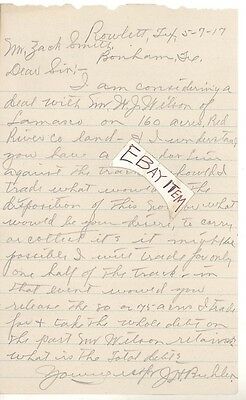 Rowlett, Tex, 5-7-17
Mr. Zack Smith,
Bonham, Tex.
Dear Sir:-
I am considering a
deal with Mr. W.J. Wilson of
Lamasco on 160 acres Red
River Co land & I understand
you have a lien
against the tract. Should I
trade what would be the
disposition of this
would be your desire, to carry
or collect it & it might be
possible I will trade for only
one half of the tract - in
that event would you
release the 80 or 75 acres I trade
for & take the whole debt on
the part Mr Wilson retains
what is the total debt?
Yours resp
EBAY ITEM